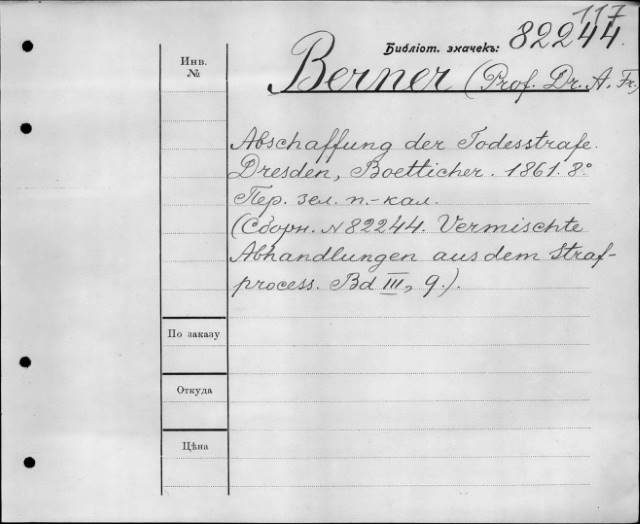 117
Библіот. значекъ: 82244.
Инв.
№
Berner (Prof. Dr. A. Fr.)
Abschaffung der Todesstrafe.
Dresden, Boetticher. 1861. 8.°
Пер. зел. п.-кал.
(Сборн. N 82244. Vermischte
Abhandlungen aus dem Straf-
process. Bd III, 9.).
По заказу
Откуда
Цѣна